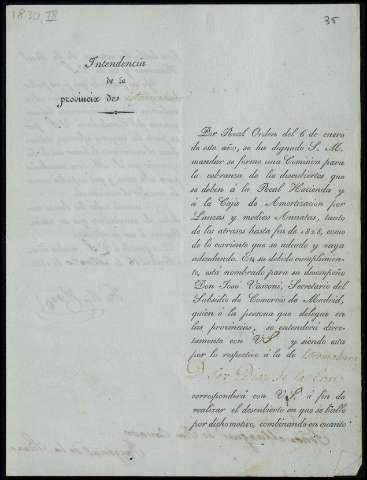 1830
35
Intendencia
de la
provincia de
Por Real Orden del 6 de enero
de este año, se ha dignado S. M.
mandar se forme una Comision para
la cobranza de los descubiertos que
se deben á la Real Hacienda y
á la Caja de Amortizacion por
Lanzas y medias Annatas, tanto
de los atrasos hasta fin de 1828, como
de lo corriente que se adeude y vaya
adeudando. En su debido cumplimien-
to, está nombrado para su desempeño
Don José Visconi, Secretario del
Subsidio de Comercio de Madrid,
quien o la persona que delegue en
las provincias, se entenderá direc-
tamente con VS y siendo esta
por lo respectivo á la de Estremadura
D.
corresponderá con VS. á fin de
realizar el descubierto en que se halle
por dicho motivo, combinando en cuanto